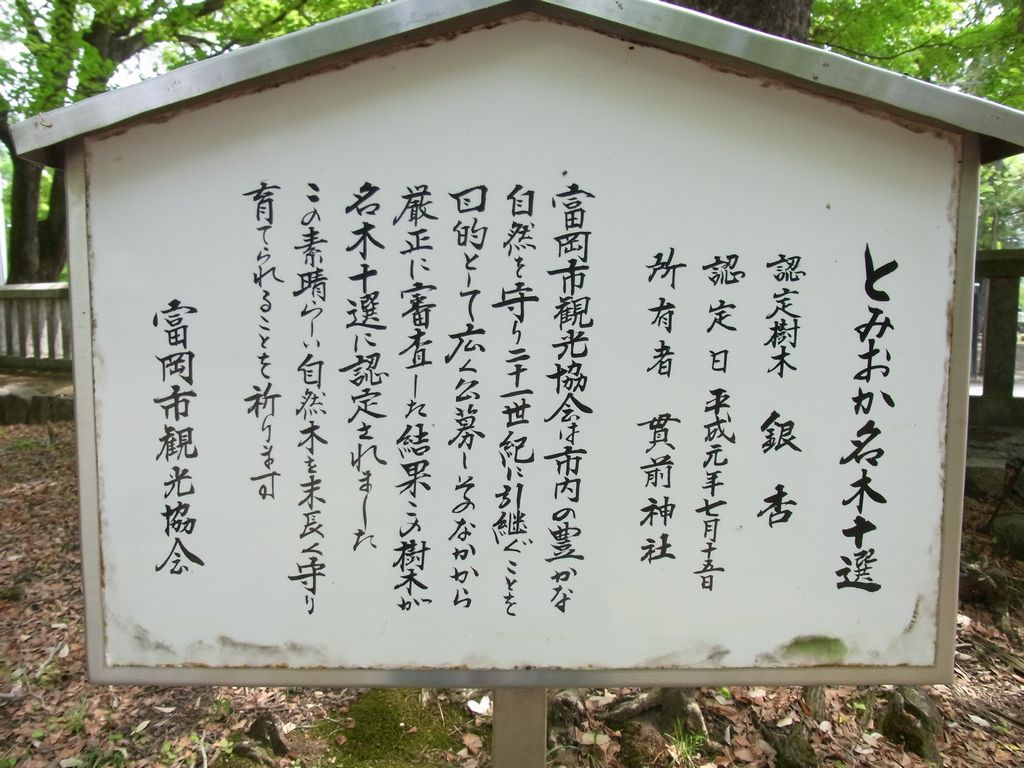 とみおか名木十選
認定樹木 銀杏
認定日 平成元年七月十五日
所有者 貫前神社
富岡市観光協会は市内の豊かな
自然を守り二十一世紀に引継ぐことを
目的として広く公募しそのなかから
厳正に審査した結果この樹木が
名木十選に認定されました
この素晴らしい自然木を末長く守り
育てられることを祈ります
富岡市観光協会